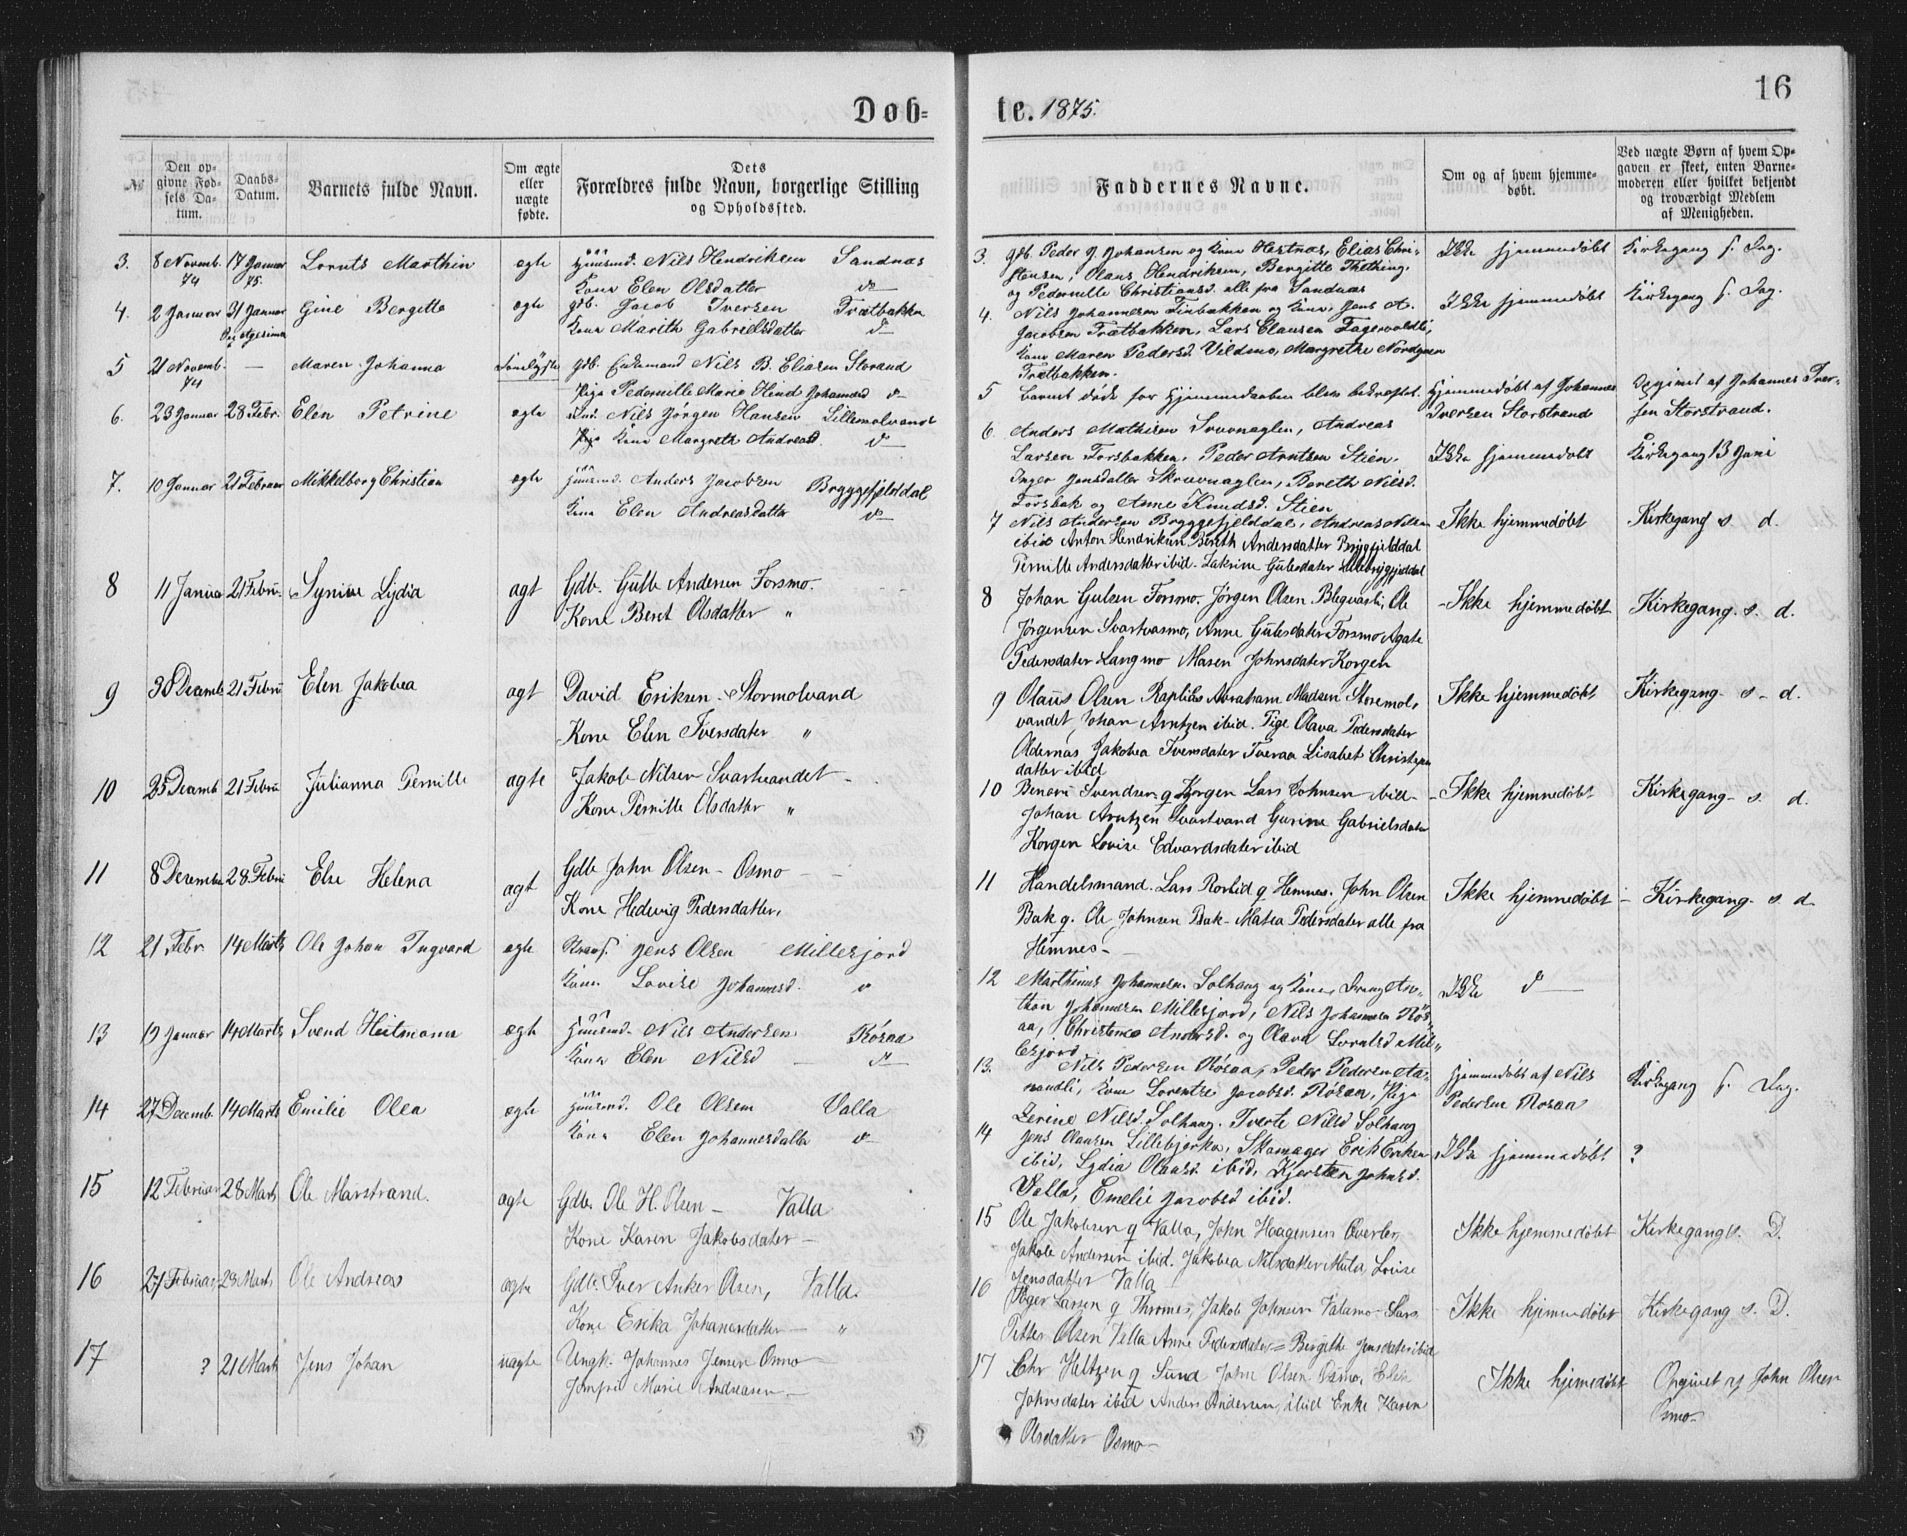 16
Døb=
te. 1875.
№
Den op-
givne Fød-
sels Da-
tum.
Daabs-
Datum.
Barnets fulde Navn.
Om ægte
eller
uægte
fødte.
Dets
Forældres fulde Navn, borgerlige Stilling
og Opholdssted.
Faddernes Navne.
Om og af hvem hjemme-
døbt.
Ved uægte Børn af hvem Op-
gaven er skeet, enten Barne-
moderen eller hvilket bekjendt
og troværdigt Medlem
af Menigheden.
3. 8 Novemb. 74 17 Januar 75. Lornts Marthin ægte Huusmd. Nils Hendriksen Sandnæs
Kone Elen Olsdatter
4. 2 Januar 31 Januar Gine Bergitte ægte gdb. Jacob Iversen Trætbakken
Kone Marith Gabrielsdatter
5 21 Novemb. 74 — Maren Johanna gdb. Enkemand Nils B. Eliasen Storand
Pige Pedernille Marie
6. 23 Januar 28 Febr. Elen Petrine ægte Nils Jørgen Hansen Lillemolvand
Kone Margreth Andreasd
7. 10 Januar 21 Februar Mikkelborg Christian ægte Huusmd. Anders Jacobsen Bryggefjelddal
Kone Elen Andreasdatter
8 11 Janua 21 Febru. Synive Lydia agt Gdb. Gulb Andersen Forsmo.
Kone Beret Olsdatter "
9 30 Decemb 21 Febru Elen Jakobea agt David Eriksen Stormolvand
Kone Elen Iversdater "
10 25 Decemb 21 Febru Julianna Pernille agte Jakob Nilsen Svartvandet
Kone Pernille Olsdatter "
11 8 December 28 Febru Else Helena agt Gdb John Olsen - Osmo
Kone Hedvig Pedersdatter,
12 21 Febr. 14 Marts Ole Johan Ingvard ægte Jens Olsen Millesjord
Kone Lovise Johannesd.
13 19 Januar 14 Marts Svend Heitmann ægte Huusmd. Nils Andersen Røsaa
Kone Elen Nilsd
14 27 Decemb. 14 Marts Emilie Olea ægte Huusmd. Ole Olsen Valla
Kone Elen Johannesdatter
15 12 Februar 28 Marts Ole Marstrand. agte Gdb. Ole H. Olsen - Valla
Kone Karen Jakobsdater
16 27 Februar 28 Marts Ole Andreas ægte Gdb. Iver Anker Olsen, Valla.
Kone Erika Johanesdatter "
17 ? 21 Marts Jens Johan uagte Ungk. Johannes Jensen Osmo
Jomfru Marie Andreasen
3. gdb. Peder J Johansen og Kone Hestnæs, Elias Chri-
stensen, Olaus Hendriksen, Bergitte
og Pedernille Christiansd. alle fra Sandnæs
Ikke hjemmedøbt Kirkegang s. Dag.
4. Nils Johannesen Finbakken og Kone, Jens A.
Jacobsen Trætbakken, Lars Clausen Fagervoldli,
Kone Maren Pedersd. Vildmo, Margrethe
Trætbakken.
Ikke hjemmedøbt Kirkegang s. Dag.
5 Barnet døde før Hjemmedaaben blev bekræftet.
Hjemmedøbt af Johannes
Iversen Storstrand
Opgivet af Johannes Iver-
sen Storstrand.
6. Anders Mathisen Andreas
Larsen Forsbakken. Peder Arntsen Stien.
Inger Jensdatter Skravnaglen, Bereth Nilsd.
Forsbak og Anne Knudsd. Stien
Ikke hjemmedøbt Kirkegang 13 Juni
7 Nils Andersen Bryggefjelddal, Andreas Nilsen
ibid Anton Hendriksen Bereth Andersdatter Brygfjelddal
Pernille Andersdatter ibid.
Ikke hjemmedøbt Kirkegang s. d.
8 Johan Gulsen Forsmo. Jørgen Olsen Ole
Jørgensen Svartvasmo, Anne Forsmo Agate
Pedersdater Langmo Maren Johnsdater Korgen
Ikke hjemmedøbt Kirkegang. s. d.
9 Olaus Olsen Abraham Madsen Stormol-
vandet, Johan Arntzen ibid. Pige Olava Pedersdater
Oldernæs Jakobea Iversdater Tveraa Lisabet
datter ibid
Ikke hjemmedøbt Kirkegang - s - d.
10 Svendsen g Korgen Lars Johnsen ibid
Johan Arntzen Svartvand Gurine Gabrielsdater
Korgen Lovise Edvardsdater ibid
Ikke hjemmedøbt Kirkegang - s. d.
11 Handelsmand. Lars g Hemnes. John Olsen
Bak g. Ole Johnsen Bak - Matea Pedersdater alle fra
Hemnes -
Ikke hjemmedøbt - Kirkegang - s d
12 Marthinus Johannesen Solhaug og Kone, Dreng An-
thon Johannesen Millesjord, Nils Johannesen Røs-
aa, Andersd. og Olava Mil-
lesjord
Ikke
13. Nils Pedersen Røsaa, Peder Pedersen
Kone Lorentse Jacobsd. Røsaa, Pige
Nilsd Solhaug. Nilsd Solhaug
Hjemmedøbt af Nils
Pedersen Røsaa
Kirkegang s. Dag.
14 Jens Olausen Lillebjerka, Skomager Erik Eriksen
ibid, Lydia Olausd. ibid, Kjersten Johnsd.
Valla, Emelie Jacobsd ibid.
Ikke hjemmedøbt ?
15 Ole Jakobsen g Valla, John Haagensen
Jakob Andersen ibid. Jakobea Nilsdatter Lovise
Jensdatter Valla
Ikke hjemmedøbt Kirkegang s. D.
16 Larsen g Jakob Johnsen Valamo Lars
Petter Olsen Valla Anne Pedersdater Bergithe Jensdater ibid
Ikke hjemmedøbt Kirkegang s. D.
17 Chr Heltzen g Sund John Olsen Osmo, Elen
Johnsdater ibid Anders Andersen, ibid Enke Karen
Olsdatter Osmo
Ikke hjemedøbt Opgivet af John Olsen
Osmo